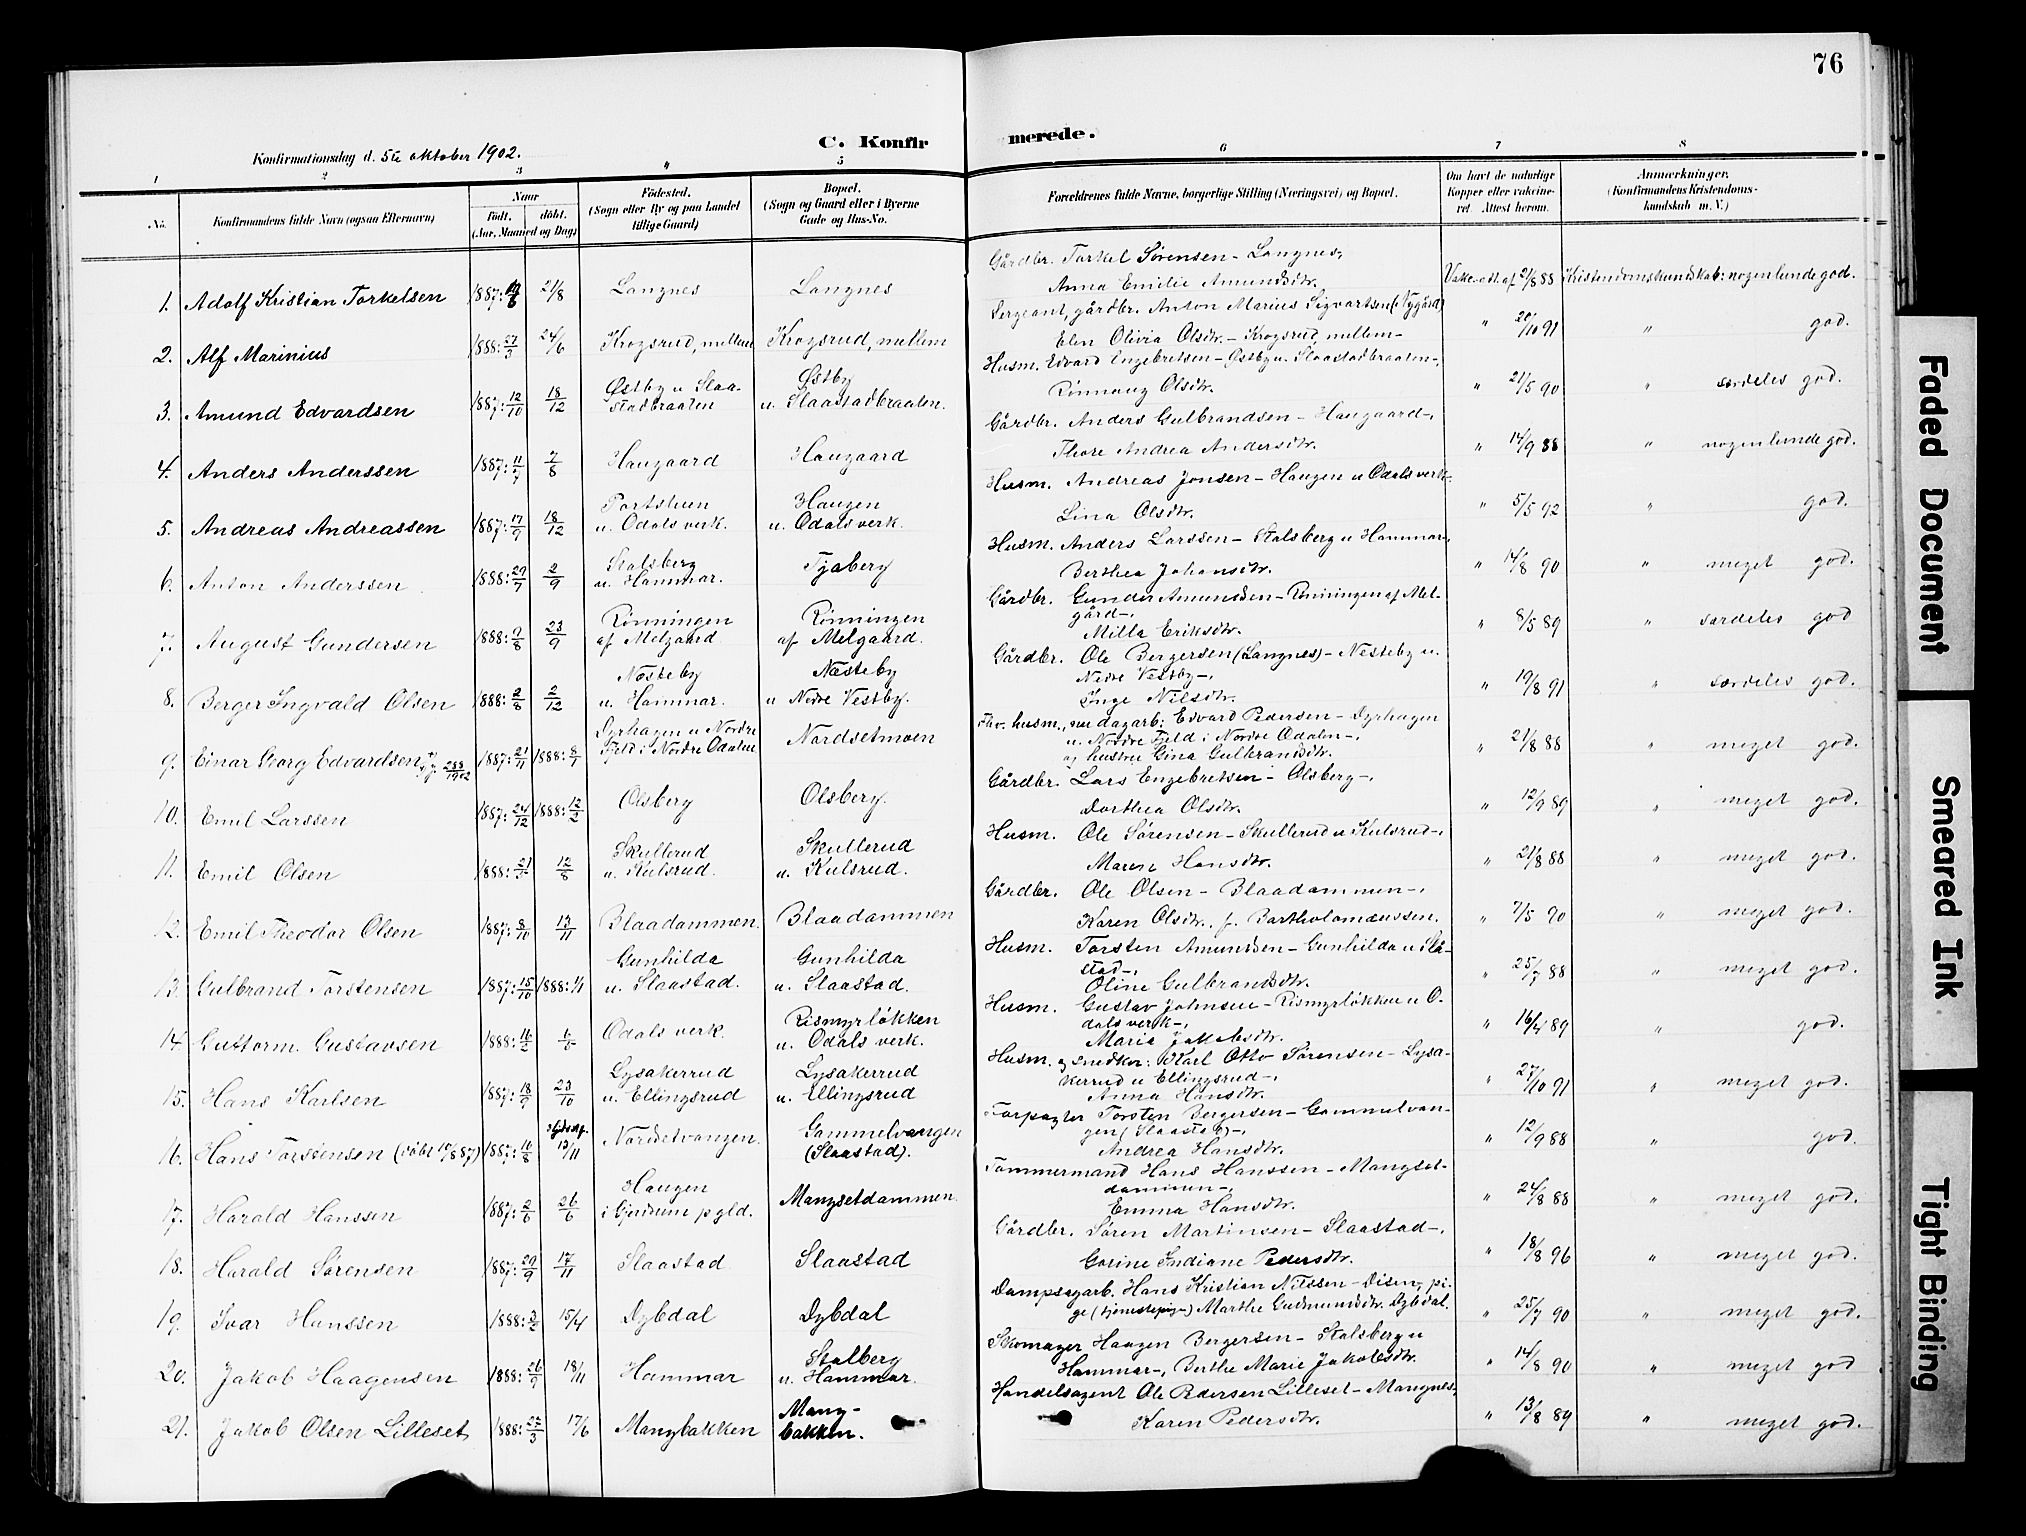 76
C. Konfirmerede.
Konfirmationsdag d. 5te oktober 1902.
1 2 3 5 6 7 8
No.
Konfirmandens fulde Navn (ogsaa Efternavn)
Naar
födt. döbt.
(Aar, Maaned og Dag)
Födested.
(Sogn eller By og paa Landet
tillige Gaard)
Bopæl.
(Sogn og Gaard eller i Byerne
Gade og Hus-No.
Forældrenes fulde Navne, borgerlige Stilling (Næringsvei) og Bopæl.
Om havt de naturlige
Kopper eller vaccine-
ret. Attest herom.
Anmerkninger.
(Konfirmandens Kristendoms-
kundskab m. V.)
1. Adolf Kristian Torkelsen 1887: 21/8 Langnes Langnes Gårdbr. Torkel Sørensen - Langnes,
Anna Emilie Amundsdtr. Vakc. att. af 21/8 88 Kristendomskundskab: nogenlunde god.
2. Alf Marinius 1888: 27/3 24/6 Krogsrud, mellem Krogsrud, mellem Sergeant, gårdbr. Anton Marius Sigvartsen (Nygård)
Elen Olivia Olsdtr. - Krogsrud mellem - " 20/10 91 " god.
3. Amund Edvardsen 1887: 12/10 18/12 Østby u Slaa-
stadbraaten Østby
u. Slaastadbraaten. Husm. Edvard Engebretsen - Østby u. Slaastadbraaten -,
Rønnaug Olsdtr. " 21/5 90 " særdeles god.
4. Anders Anderssen 1887: 11/7 7/8 Haugaard Haugaard Gårdbr. Anders Gulbrandsen - Haugaard -,
Thore Andrea Andersdtr. " 14/9 88 " nogenlunde god.
5. Andreas Andreassen 1887: 17/9 18/12 u. Odals verk. Haugen
u. Odals verk. Husm. Andreas Jonsen - Haugen u Odals verk -,
Lina Olsdtr. " 5/5 92 " god.
6. Anton Anderssen 1888: 29/7 2/9 Stalsberg
u. Hammar. Tjaberg Husm. Anders Larssen - Stalsberg u Hammar -,
Berthea Johansdtr. " 14/8 90 " meget god.
7. August Gundersen 1888: 7/8 23/9 Rønningen
af Melgaard Rønningen
af Melgaard. Gårdbr. Gunder Amundsen - Rønningen af Mel-
gård -,
Milla Eriksdtr. " 8/5 89 " særdeles god
8. Berger Ingvald Olsen 1888: 2/8 2/12 Næsteby
u. Hammar. Næsteby
u Nedre Vestby. Gårdbr. Ole Bergersen (Langnes) - Nesteby u.
Nedre Vestby -,
Inge Nilsdtr. " 19/8 91 " særdeles god.
9. Einar Georg Edvardsen 288/1902 1887: 21/11 1888: 8/1 Dyrhagen u Nordre
Fjeld i Nordre Odalen Nordsetmoen Fhv. husm., nu dagarb. Edvard Pedersen - Dyrhagen
u. Nordre Fjeld i Nordre Odalen -,
og hustru Gina Gulbrandsdtr. " 21/8 88 " meget god.
10. Emil Larssen 1887: 24/12 1888: 12/2 Olsberg Olsberg. Gårdbr. Lars Engebretsen - Olsberg -,
Dorthea Olsdtr. " 12/9 89 " meget god.
11. Emil Olsen 1888: 12/8 Skullerud
u. Kulsrud. Skullerud
u. Kulsrud. Husm. Ole Sørensen - Skullerud u Kulsrud -,
Maren Hansdtr. " 21/8 88 " meget god.
12. Emil Theodor Olsen 1887: 8/10 13/11 Blaadammen. Blaadammen Gårdbr. Ole Olsen - Blaadammen -,
Karen Olsdtr. f. Bartholomæussen. " 7/5 90 " meget god.
13. Gulbrand Torstensen 1887: 15/10 1888: 1/1 Gunhilda
u. Slaastad. Gunhilda
u. Slaastad. Husm. Torsten Amundsen - Gunhilda u Slå-
stad -,
Oline Gulbrandsdtr. " 25/7 88 " meget god.
14. Guttorm Gustavsen 1888: 16/2 Odals verk. Rismyrløkken
u. Odals verk. Husm. Gustav Johnsen - Rismyrløkken u O-
dals verk -,
Marie Jakobsdtr. " 16/4 89 " god.
15. Hans Karlsen 1887: 18/9 23/10 Lysakerrud
u. Ellingsrud Lysakerrud
u. Ellingsrud Husm. og snedker: Karl Otto Sørensen - Lysa-
kerrud u Ellingsrud -,
Anna Hansdtr. " 27/10 91 " meget god.
16. Hans Torstensen 1887: 10/8 13/11 Nordsetvangen. Gammelvangen
(Slaastad). Forpagter Torsten Bergersen - Gammelvan-
gen (Slaastad) -,
Andrea Hansdtr. " 12/9 88 " god.
17. Harald Hanssen 1887: 2/6 26/6 Haugen
i Gjerdrum pgld. Mangsetdammen. Tømmermand Hans Hanssen - Mangset-
dammen -,
Emma Hansdtr. " 24/8 88 " meget god.
18. Harald Sørensen 1887: 29/9 17/11 Slaastad Slaastad Gårdbr. Søren Martinsen - Slaastad -,
Gorine Indiane Pedersdtr. " 18/8 96 " meget god.
19. Ivar Hanssen 1888: 3/2 15/4 Dybdal Dybdal Dampsagarb. Hans Kristian Nilssen - Disen -, pi-
ge (tjenestepige) Marthe Gudmundsdtr. Dybdal. " 25/7 90 " meget god.
20. Jakob Haagensen 1888: 26/9 18/11 Hammar Stalberg
u. Hammar. Skomager Haagen Bergersen - Stalsberg u
Hammar -, Berthe Marie Jakobsdtr. " 14/8 90 " meget god
21. Jakob Olsen Lilleset 1888: 22/3 17/6 Mangbakken Mang-
bakken. Handelsagent Ole Pedersen Lilleset - Mangnes,
Karen Pedersdtr. " 13/8 89 " meget god.
Faded Document
Smeared Ink
Tight Binding